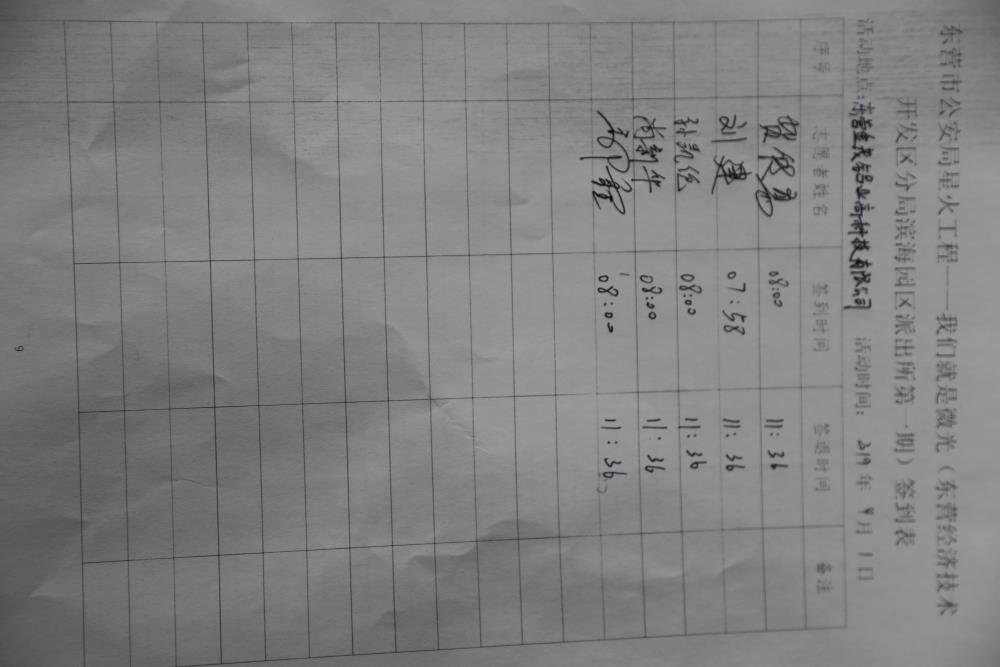 东营市公安局星火工程——我们就是微光（东营经济技术
开发区分局滨海园区派出所第一期）签到表
活动地点：东营 高科技有限公司 活动时间： 2019年9月1日
序号 志愿者姓名 签到时间 签退时间 备注
08:00 11:36
刘建 07:58 11:36
孙凯伦 08:00 11:36
尚新华 08:00 11:36
08:00 11:36
9